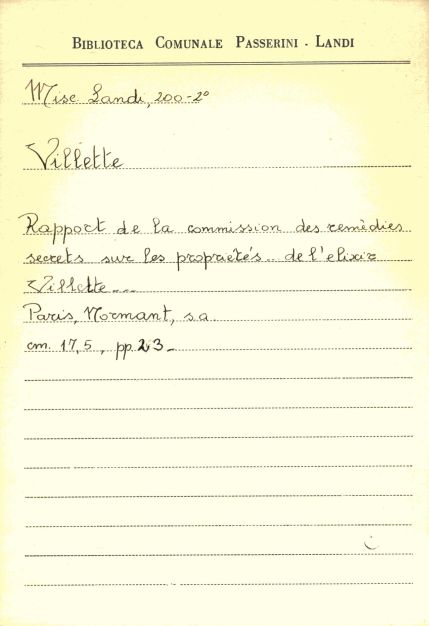 BIBLIOTECA COMUNALE PASSERINI - LANDI
Misc Landi, 200-2º
Villette
Rapport de la commission des remèdies
secrets sur les propriétés.. de l'elixir
Villette...
Paris, Normant, s.a.
cm. 17,5, pp. 23-